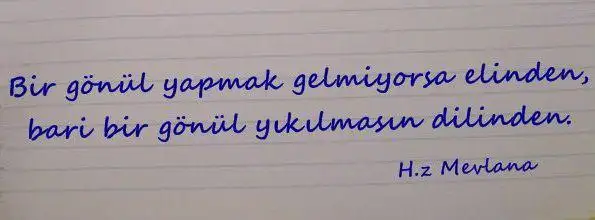 Bir gönül yapmak gelmiyorsa elinden,
bari bir gönül yıkılmasın dilinden.
H.z Mevlana